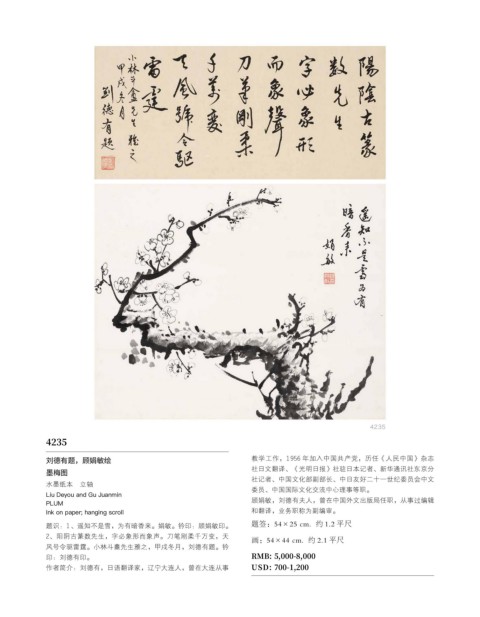 陽陰古篆
数先生
字必象形
而象聲
刀筆剛柔
千萬變
天風號令驅
雷霆
小林斗盦先生雅之
甲戌冬月
劉德有題
遥知不是雪为有
暗香来
娟敏
4235
4235
刘德有题，顾娟敏绘
墨梅图
水墨纸本　立轴
Liu Deyou and Gu Juanmin
PLUM
Ink on paper; hanging scroll
题识：1、遥知不是雪，为有暗香来。娟敏。钤印：顾娟敏印。
2、阳阴古篆数先生，字必象形而象声。刀笔刚柔千万变，天
风号令驱雷霆。小林斗盦先生雅之，甲戌冬月，刘德有题。钤
印：刘德有印。
作者简介：刘德有，日语翻译家，辽宁大连人，曾在大连从事
教学工作，1956 年加入中国共产党，历任《人民中国》杂志
社日文翻译、《光明日报》社驻日本记者、新华通讯社东京分
社记者、中国文化部副部长、中日友好二十一世纪委员会中文
委员、中国国际文化交流中心理事等职。
顾娟敏，刘德有夫人，曾在中国外文出版局任职，从事过编辑
和翻译，业务职称为副编审。
题签：54×25 cm.  约 1.2 平尺
画：54×44 cm.  约 2.1 平尺
RMB: 5,000-8,000
USD: 700-1,200